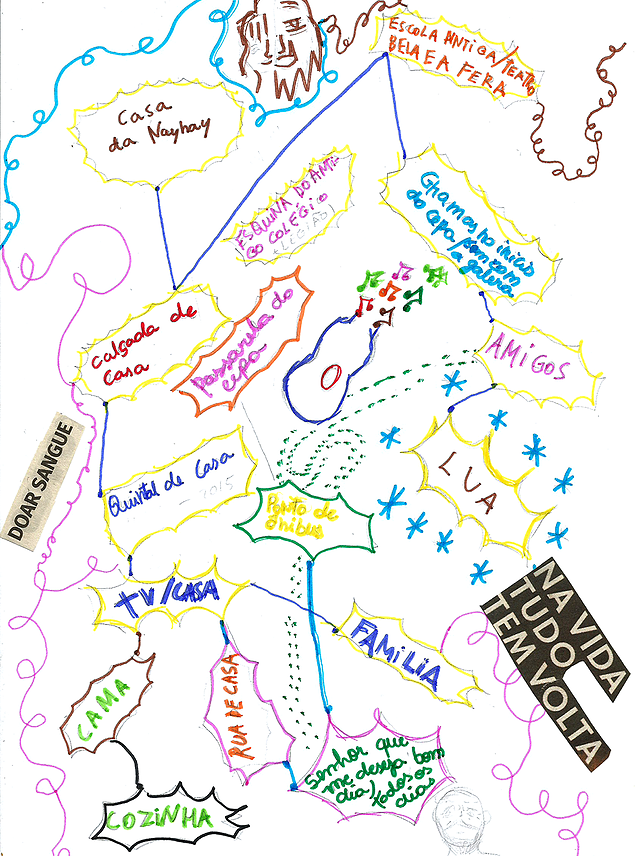 ESCOLA ANTIGA/TEATRO
BELA E A FERA
Casa
da Nayhay
ESQUINA DO ANTI-
GO COLÉGIO
Ghamastro inicio
do cepa
a galera
calçada de
casa
Passarela do
cepa
AMIGOS
DOAR SANGUE
LUA
Quintal de Casa
2015
Ponto de
ônibus
TV/CASA
NA VIDA
TUDO
TEM VOLTA
FAMILIA
CAMA
RUA DE CASA
Senhor que
me deseja bom
dia/todos os
dias
COZINHA